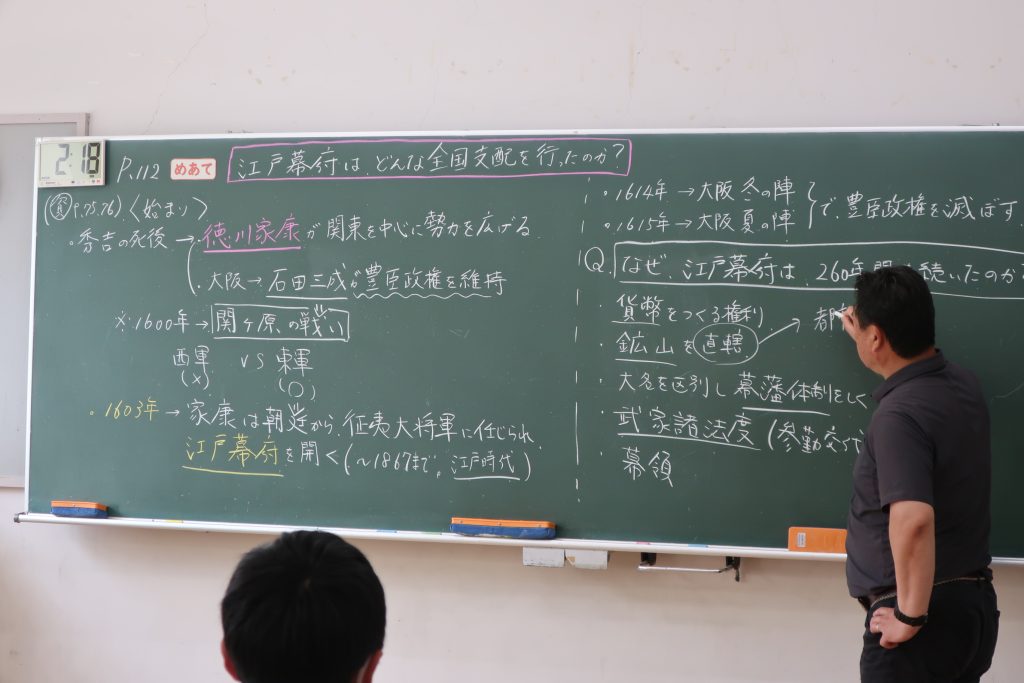 2:18
P.112 めあて 江戸幕府は、どんな全国支配を行ったのか?
(資P.75.76)〈始まり〉
。秀吉の死後→徳川家康が関東を中心に勢力を広げる
・大阪→石田三成が豊臣政権を維持
※1600年→関ヶ原の戦い
西軍 VS 東軍
(×) (○)
。1603年→家康は朝廷から、征夷大将軍に任じられ、
江戸幕府を開く(~1867まで。江戸時代)
。1614年→大阪冬の陣
。1615年→大阪夏の陣
で、豊臣政権を滅ぼす
Q. なぜ、江戸幕府は、260年間 続いたのか?
・貨幣をつくる権利
・鉱山を直轄 → 都
・大名を区別し幕藩体制をしく
・武家諸法度(参勤交代
・幕領